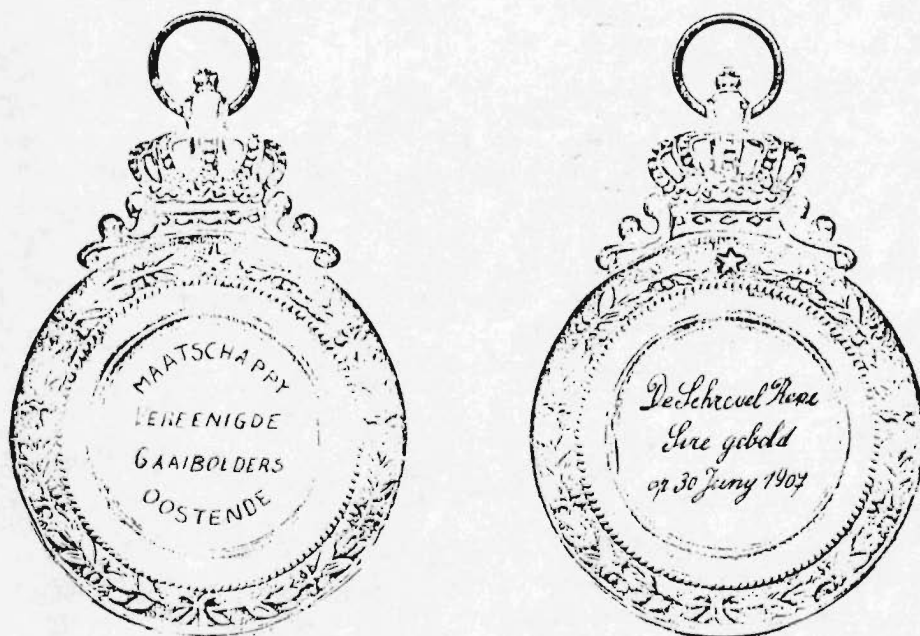 MAATSCHAPPY
VEREENIGDE
GAAIBOLDERS
OOSTENDE
De Schrevel
Sire gebold
op 30 Juny 1907